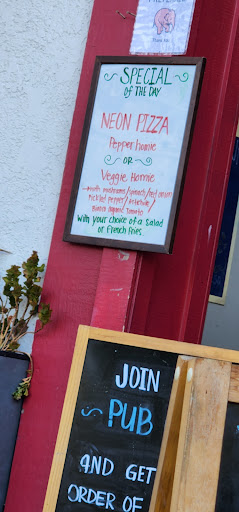 SPECIAL
OF THE DAY
NEON PIZZA
Pepper homie
OR
Veggie Homie
with mushrooms/spinach/red onion
pickled pepper/artichoke/
tomato
With your choice of a salad
or french fries.
JOIN
PUB
AND GET
ORDER OF